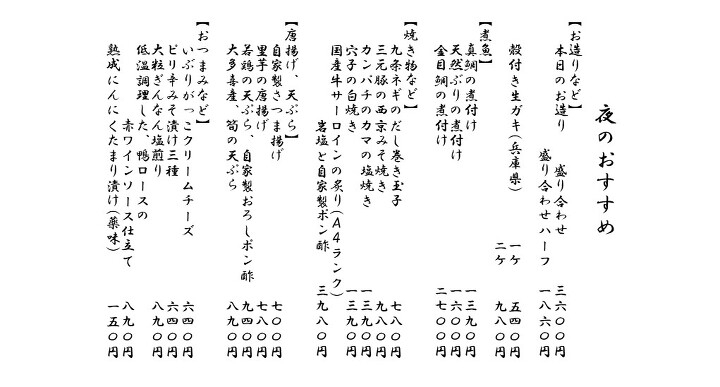 夜のおすすめ
【お造りなど】
本日のお造り 盛り合わせ 三六〇〇円
盛り合わせハーフ 一八六〇円
殻付き生ガキ(兵庫県) 一ケ 五四〇円
二ケ 九八〇円
【煮魚】
真鯛の煮付け 一三九〇円
天然ぶりの煮付け 一六〇〇円
金目鯛の煮付け 二七〇〇円
【焼き物など】
九条ネギのだし巻き玉子 七八〇円
三元豚の西京みそ焼き 九八〇円
カンパチのカマの塩焼き 一三九〇円
穴子の白焼き 一三九〇円
国産牛サーロインの炙り(A4ランク)
岩塩と自家製ポン酢 三九八〇円
【唐揚げ、天ぷら】
自家製さつま揚げ 七〇〇円
里芋の唐揚げ 七八〇円
若鶏の天ぷら、自家製おろしポン酢 九四〇円
大多喜産、筍の天ぷら 八九〇円
【おつまみなど】
いぶりがっこクリームチーズ 六四〇円
ピリ辛みそ漬け三種 六四〇円
大粒ぎんなん塩煎り 八九〇円
低温調理した、鴨ロースの
赤ワインソース仕立て 八九〇円
熟成にんにくたまり漬け(薬味) 一五〇円